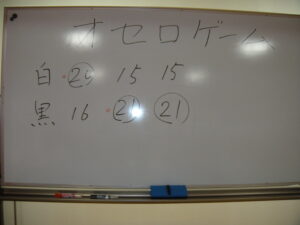 オセロゲーム
白 25 15 15
黒 16 21 21